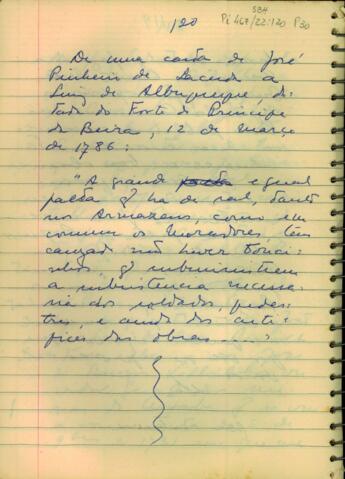 120
584
Pi 467/22:120 P30
De uma carta de José
Pinheiro de Lacerda a
Luiz de Albuquerque, da-
tada do Forte do Principe
da Beira, 12 de março
de 1786:
"A grande falta e igual
falta q̃ ha de sal, tanto
nos Armazens, como em
commum os Moradores, tem
cauzado não haver touci-
nhos, q̃ subministrem
a subsistencia necessa-
ria dos soldados, pedes-
tres, e ainda dos arti-
fices das obras......"